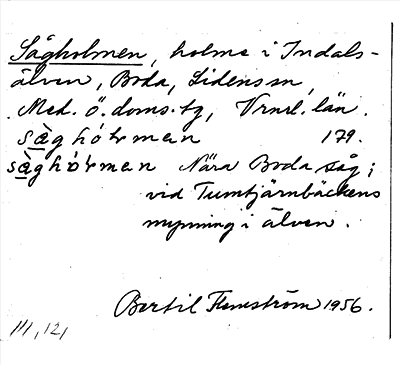 Sågholmen, holme i Indals-
älven, Boda, Lidens sn,
Med. ö. doms.-tg, Vrnrl. län.
så̱ghó̵ɽman 179.
sà̱ghó̵ɽman Nära Boda såg;
vid Tumtjärnbäckens
mynning i älven.
Bertil Flemström 1956.
III, 121